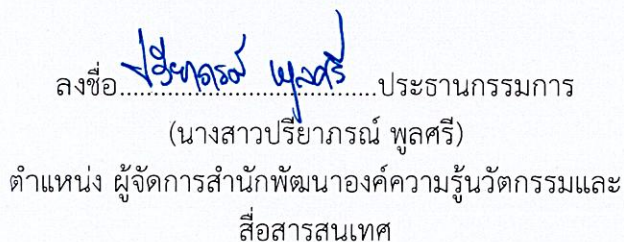 ลงชื่อ ปรียาภรณ์ พูลศรี ประธานกรรมการ
(นางสาวปรียาภรณ์ พูลศรี)
ตำแหน่ง ผู้จัดการสำนักพัฒนาองค์ความรู้นวัตกรรมและ
สื่อสารสนเทศ